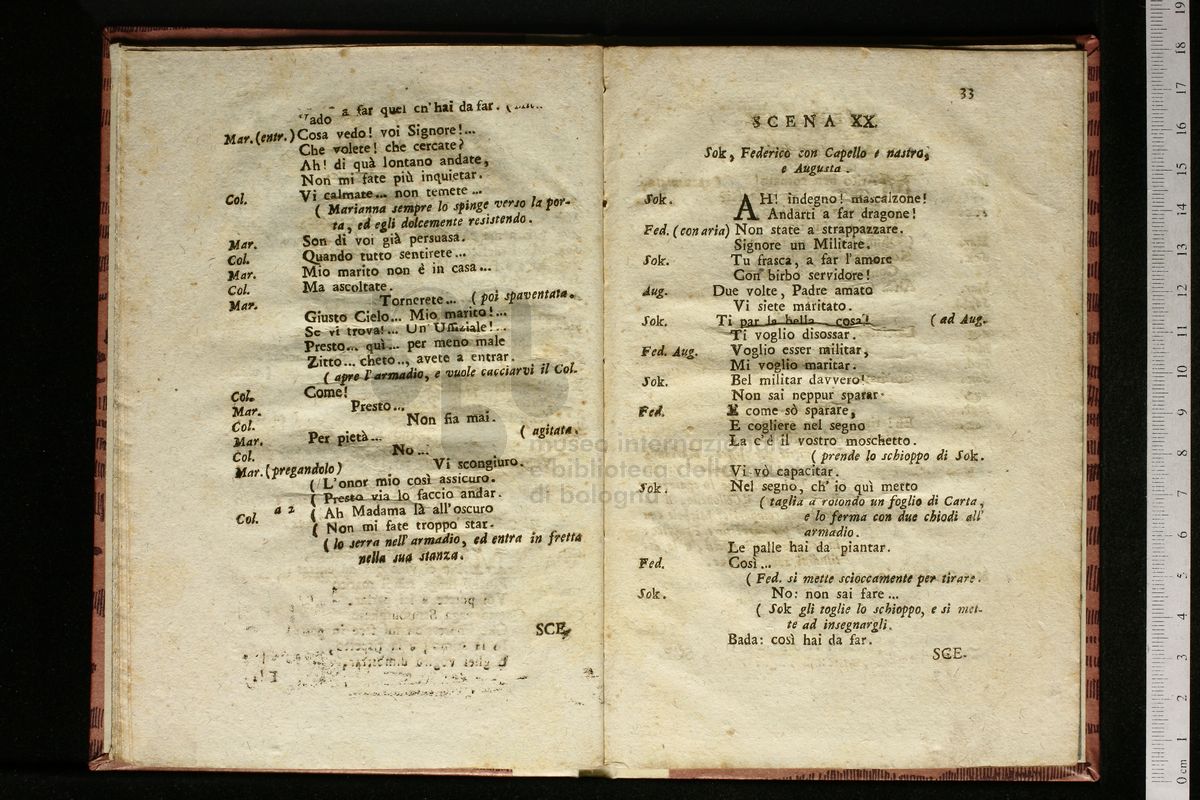 Vado a far quel ch'hai da far.
Mar. (entr.) Cosa vedo! voi Signore!...
Che volete! che cercate?
Ah! di quà lontano andate,
Non mi fate più inquietar.
Col. Vi calmate... non temete...
( Marianna sempre lo spinge verso la por-
ta, ed egli dolcemente resistendo.
Mar. Son di voi già persuasa.
Col. Quando tutto sentirete...
Mar. Mio marito non è in casa...
Col. Ma ascoltate.
Mar. Tornerete... ( poi spaventata.
Giusto Cielo... Mio marito!...
Se vi trova!... Un' Uffiziale!...
Presto... quì... per meno male
Zitto... cheto.., avete a entrar.
( apre l'armadio, e vuole cacciarvi il Col.
Col. Come!
Mar. Presto...
Col. Non fia mai.
Mar. Per pietà... ( agitata.
Col. No...
Mar. (pregandolo) Vi scongiuro.
( L'onor mio così assicuro.
( Presto via lo faccio andar.
Col. a 2 ( Ah Madama là all'oscuro
( Non mi fate troppo star.
( lo serra nell'armadio, ed entra in fretta
nella sua stanza.
SCE-
33
SCENA XX.
Sok, Federico con Capello e nastro,
e Augusta.
Sok. AH! indegno! mascalzone!
Andarti a far dragone!
Fed. (con aria) Non state a strappazzare.
Signore un Militare.
Sok. Tu frasca, a far l'amore
Con birbo servidore!
Aug. Due volte, Padre amato
Vi siete maritato.
Sok. Ti par la bella cosa! ( ad Aug.
Ti voglio disossar.
Fed. Aug. Voglio esser militar,
Mi voglio maritar.
Sok. Bel militar davvero!
Non sai neppur sparar.
Fed. E come sò sparare,
E cogliere nel segno
La c'è il vostro moschetto.
( prende lo schioppo di Sok.
Vi vò capacitar.
Sok. Nel segno, ch' io quì metto
( taglia a rotondo un foglio di Carta,
e lo ferma con due chiodi all'
armadio.
Le palle hai da piantar.
Fed. Così...
( Fed. si mette scioccamente per tirare.
Sok. No: non sai fare...
( Sok gli toglie lo schioppo, e si met-
te ad insegnargli.
Bada: così hai da far.
SCE-
museo internazionale
e biblioteca della
di bologna